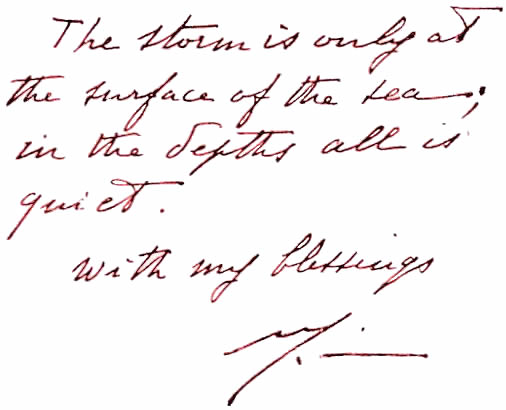 The storm is only at
the surface of the sea;
in the depths all is
quiet.
with my blessings